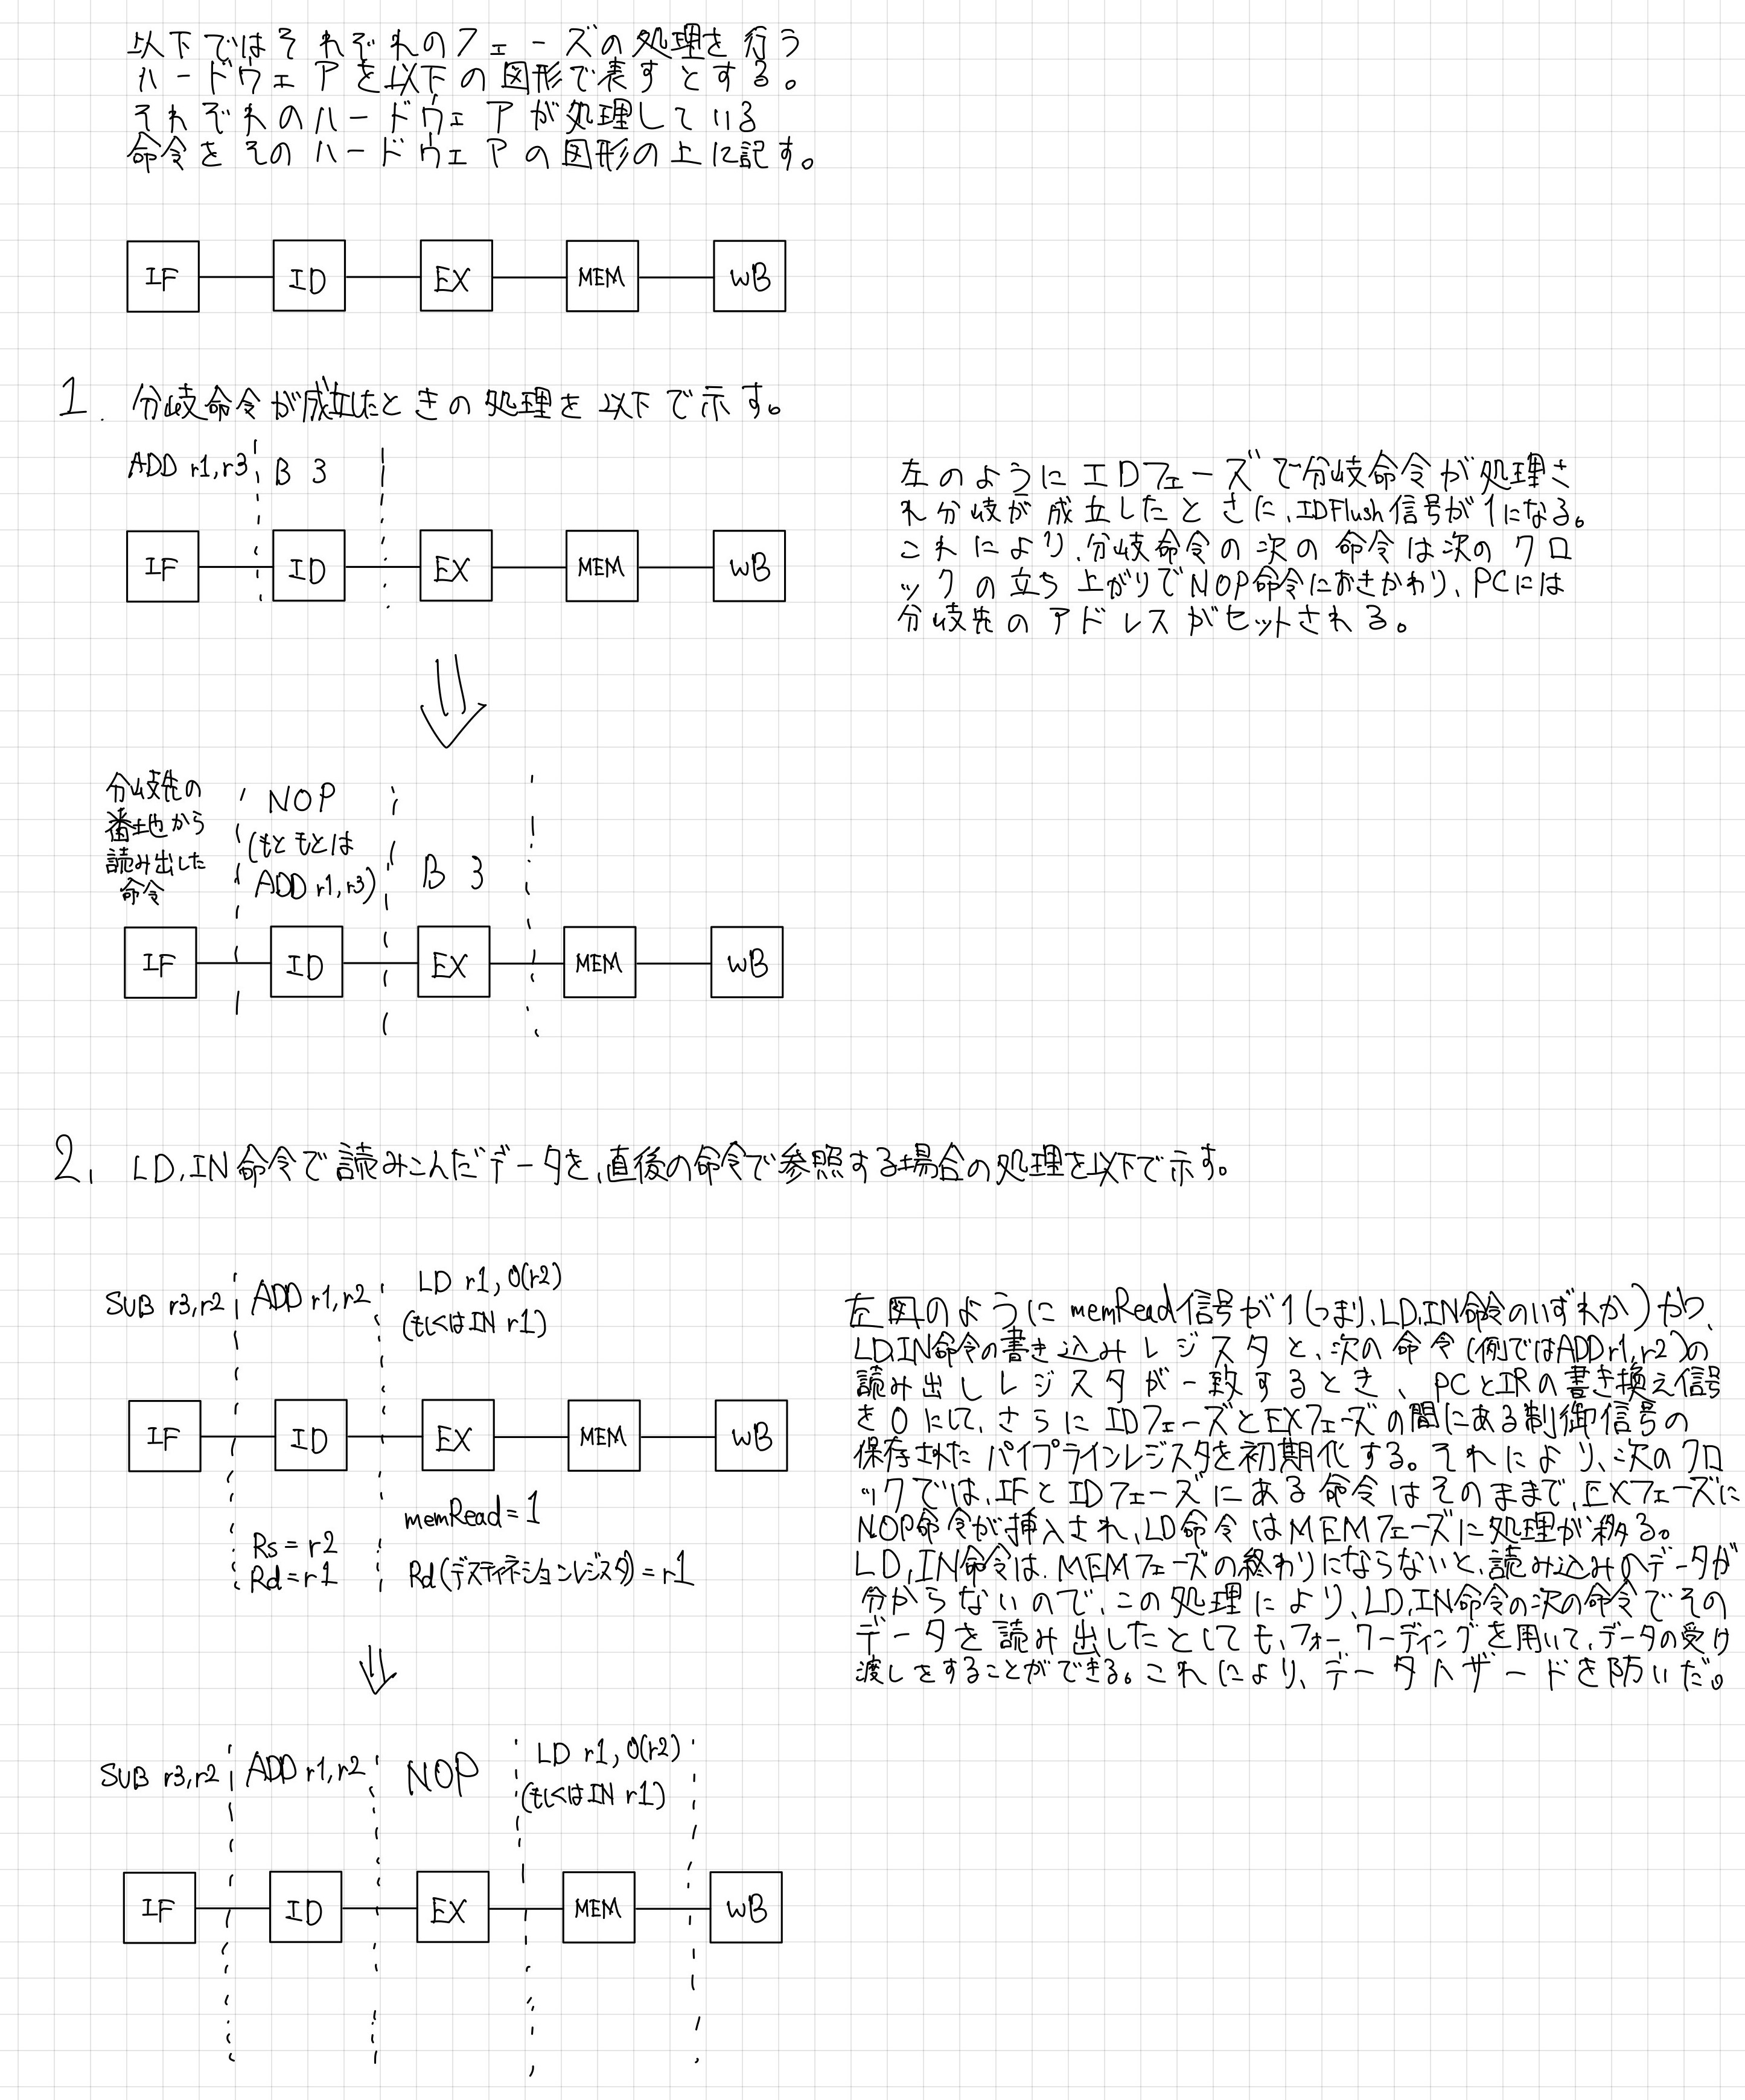 以下ではそれぞれのフェーズの処理を行う
ハードウェアを以下の図形で表すとする。
それぞれのハードウェアが処理している
命令をそのハードウェアの図形の上に記す。
IF ID EX MEM WB
1. 分岐命令が成立したときの処理を以下で示す。
ADD r1,r3 B 3
IF ID EX MEM WB
左のようにIDフェーズで分岐命令が処理さ
れ分岐が成立したときに、IDFlush信号が1になる。
これにより、分岐命令の次の命令は次のクロ
ックの立ち上がりでNOP命令におきかわり、PCには
分岐先のアドレスがセットされる。
分岐先の
番地から
読み出した
命令
NOP
(もともとは
ADD r1,r3)
B 3
IF ID EX MEM WB
2. LD,IN命令で読みこんだデータを、直後の命令で参照する場合の処理を以下で示す。
SUB r3,r2 ADD r1,r2 LD r1, 0(r2)
(もしくはIN r1)
IF ID EX MEM WB
Rs = r2
Rd = r1
memRead = 1
Rd(デスティネションレジスタ) = r1
左図のようにmemRead信号が1(つまり、LD,IN命令のいずれか)かつ、
LD,IN命令の書き込みレジスタと、次の命令(例ではADD r1,r2)の
読み出しレジスタが一致するとき、PCとIRの書き換え信号
を0にして、さらにIDフェーズとEXフェーズの間にある制御信号の
保存されたパイプラインレジスタを初期化する。それにより、次のクロ
ックでは、IFとIDフェーズにある命令はそのままで、EXフェーズに
NOP命令が挿入され、LD命令はMEMフェーズに処理が移る。
LD,IN命令は、MEMフェーズの終わりにならないと、読み込みのデータが
分からないので、この処理により、LD,IN命令の次の命令でその
データを読み出したとしても、フォーワーディングを用いて、データの受け
渡しをすることができる。これにより、データハザードを防いだ。
SUB r3,r2 ADD r1,r2 NOP LD r1, 0(r2)
(もしくはIN r1)
IF ID EX MEM WB